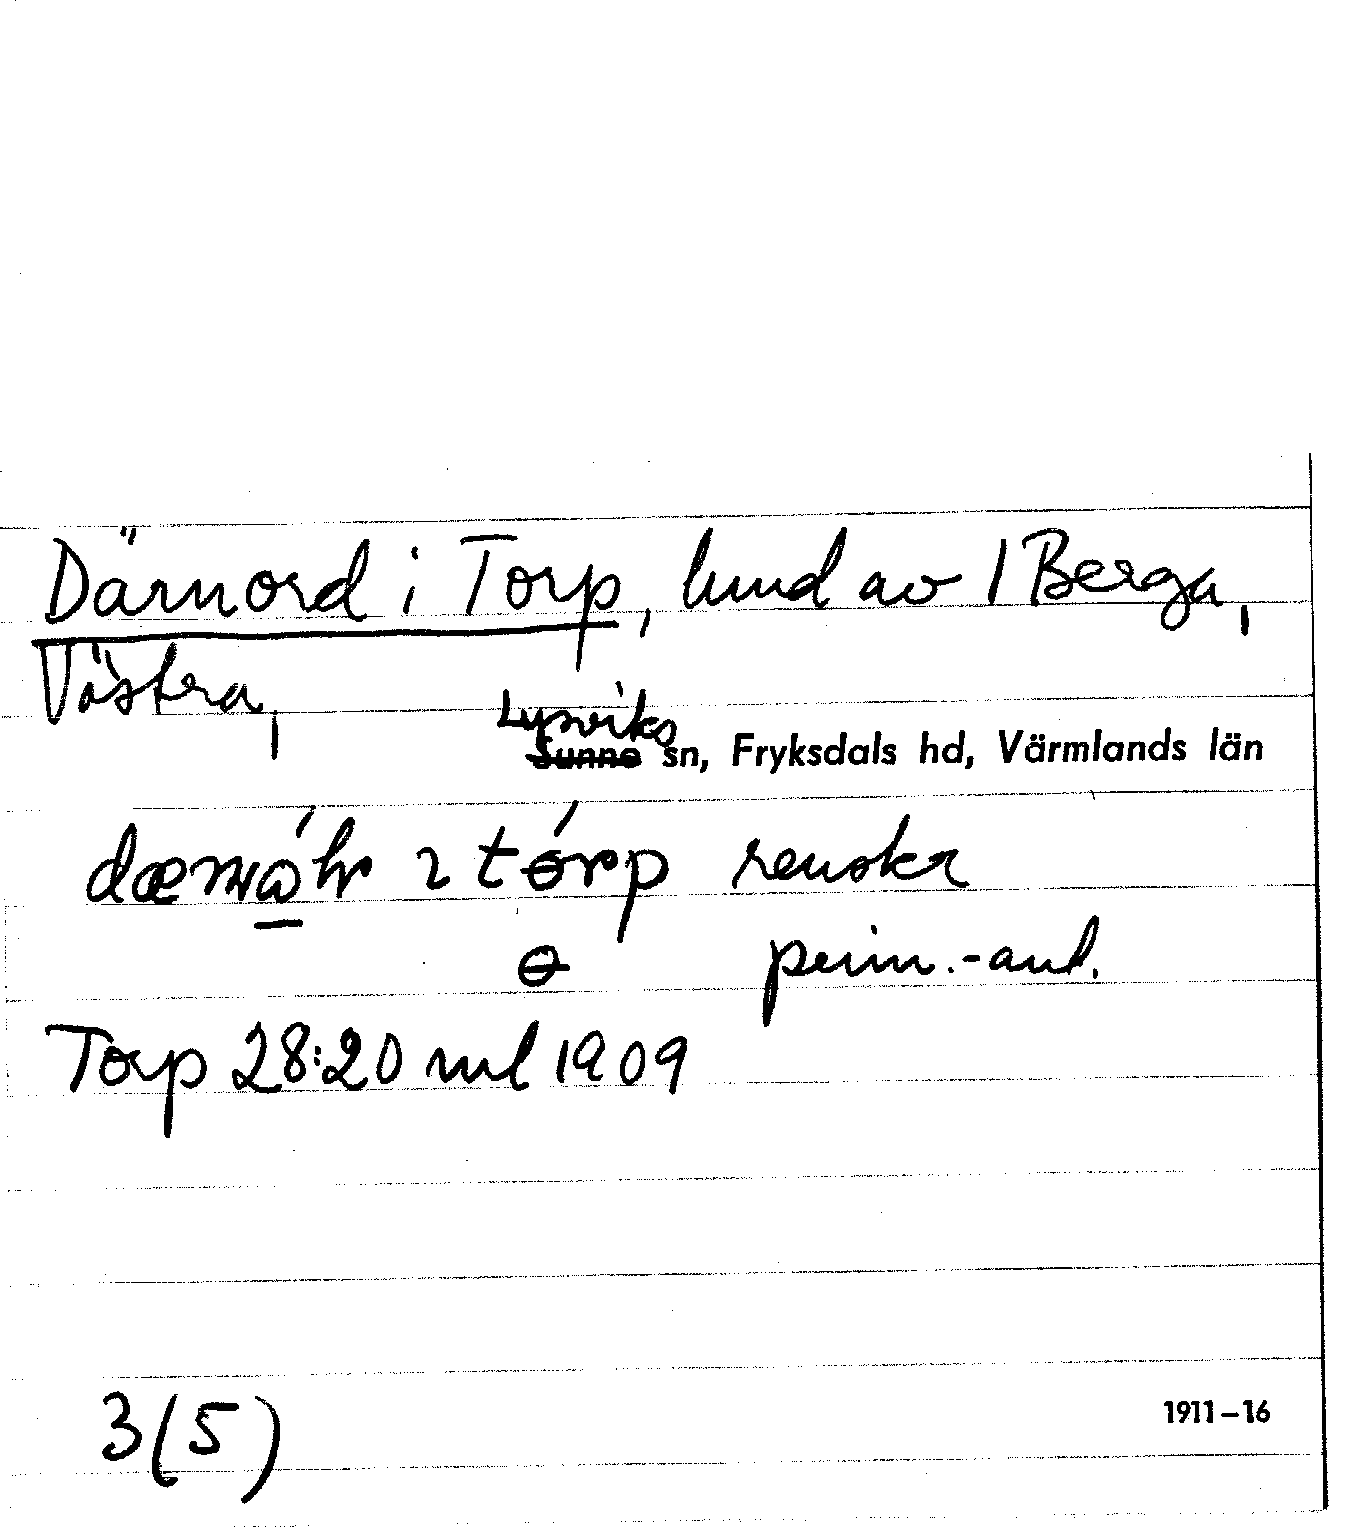 Därnord i Torp, lund av 1 Berga,
Västra,
Lysviks
Sunne sn, Fryksdals hd, Värmlands län
i tórp renskr
perm.-ant.
Torp 28:20 ml 1909
3(5)
1911–16